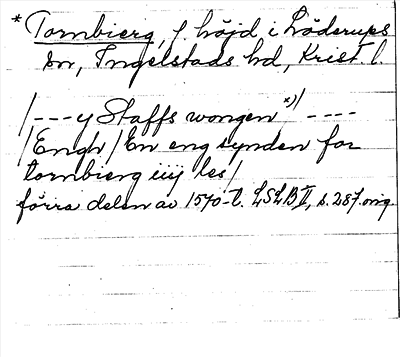 * Tornbierg, f. höjd i Löderups
sn, Ingelstads hd, Krist. l.
/---y Staffs wongen *)/ ----
/Engh/ En eng synden for
tornbierg iiij les/
förra delen av 1570-t. LSLB II, s. 287. orig.